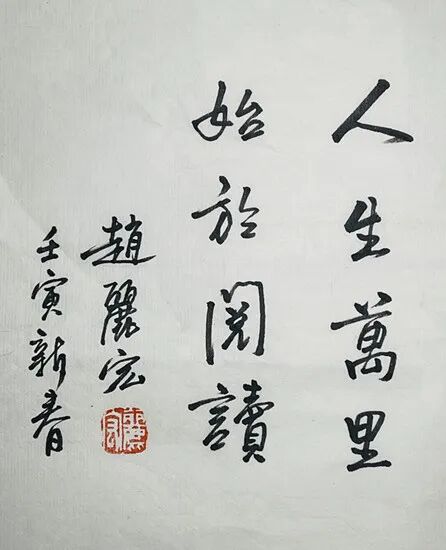 人生萬里
始於閱讀
趙麗宏
壬寅新春
麗宏